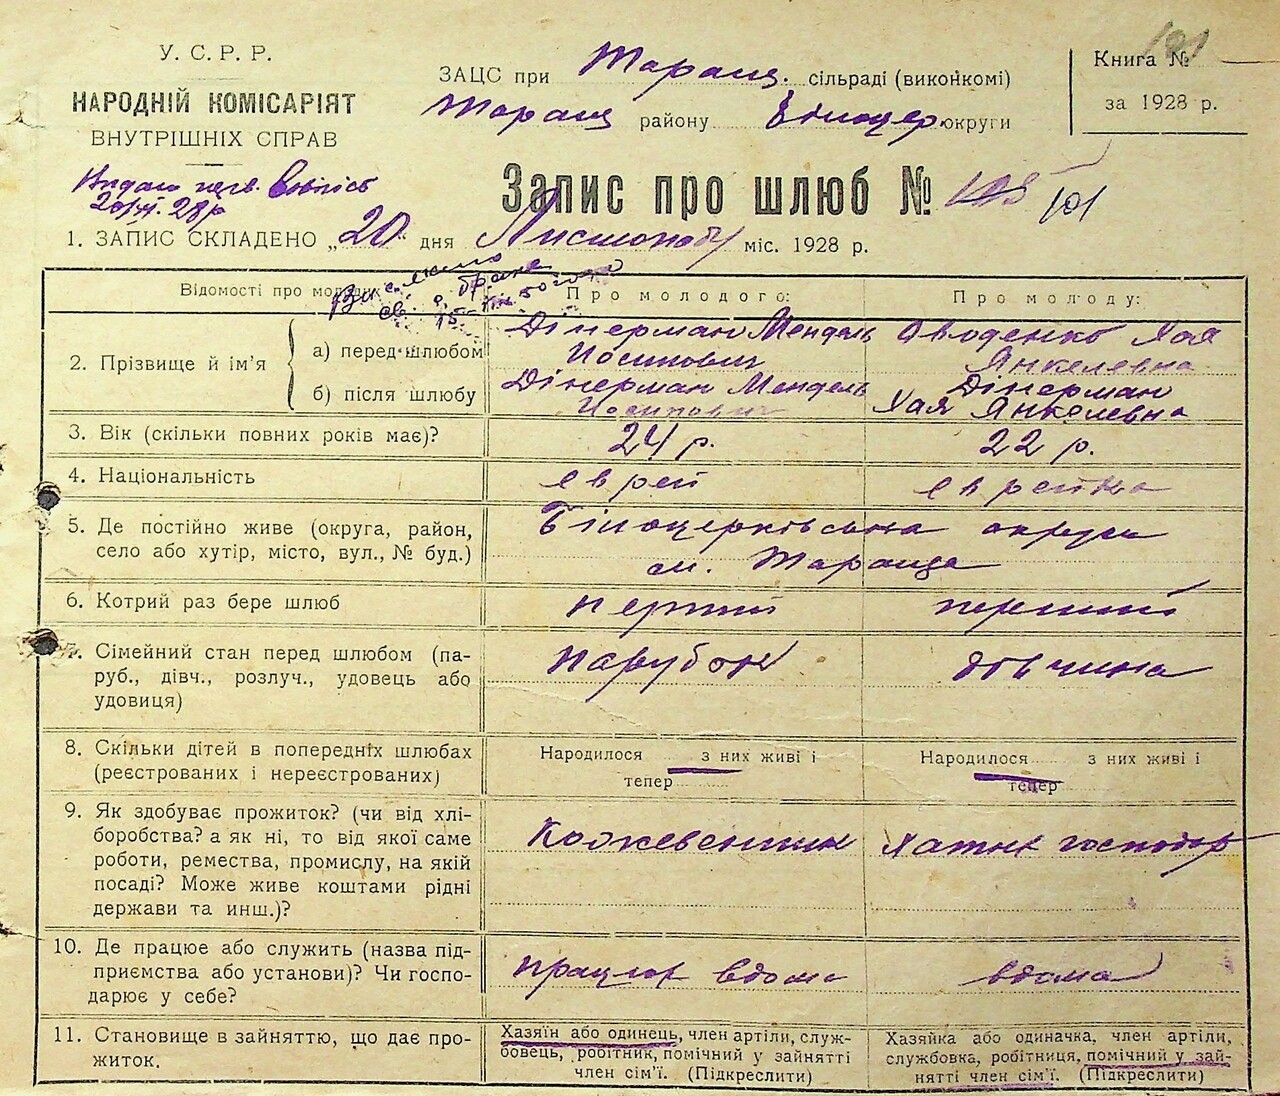 У. С. Р. Р.
НАРОДНІЙ КОМІСАРІЯТ
ВНУТРІШНІХ СПРАВ
ЗАЦС при Таращ. сільраді (виконкомі)
Таращ району Білоцер. округи
Книга № 101
за 1928 р.
20/XI. 28 р
Запис про шлюб № 105 101
1. ЗАПИС СКЛАДЕНО „20" дня Листопаду міс. 1928 р.
Відомості про молодих
Про молодого:
Про молоду:
2. Прізвище й ім'я
а) перед шлюбом
Дінерман Мендель
Иосипович
Оводенко Хая
Янкелевна
б) після шлюбу
Дінерман Мендель
Иосипович
Дінерман
Хая Янкелевна
3. Вік (скільки повних років має)?
24 р.
22 р.
4. Національність
еврей
еврейка
5. Де постійно живе (округа, район,
село або хутір, місто, вул., № буд.)
Білоцерківська округа
м. Тараща
6. Котрий раз бере шлюб
перший
перший
7. Сімейний стан перед шлюбом (па-
руб., дівч., розлуч., удовець або
удовиця)
парубок
дівчина
8. Скільки дітей в попередніх шлюбах
(реєстрованих і нереєстрованих)
Народилося з них живі і
тепер
Народилося з них живі і
тепер
9. Як здобуває прожиток? (чи від хлі-
боробства? а як ні, то від якої саме
роботи, ремества, промислу, на якій
посаді? Може живе коштами рідні
держави та инш.)?
Кожевенник
Хатнє господар
10. Де працює або служить (назва під-
приємства або установи)? Чи госпо-
дарює у себе?
працює вдома
вдома
11. Становище в зайняттю, що дає про-
житок.
Хазяїн або одинець, член артіли, служ-
бовець, робітник, помічний у зайнятті
член сім'ї. (Підкреслити)
Хазяйка або одиначка, член артіли,
службовка, робітниця, помічний у зай-
нятті член сім'ї. (Підкреслити)